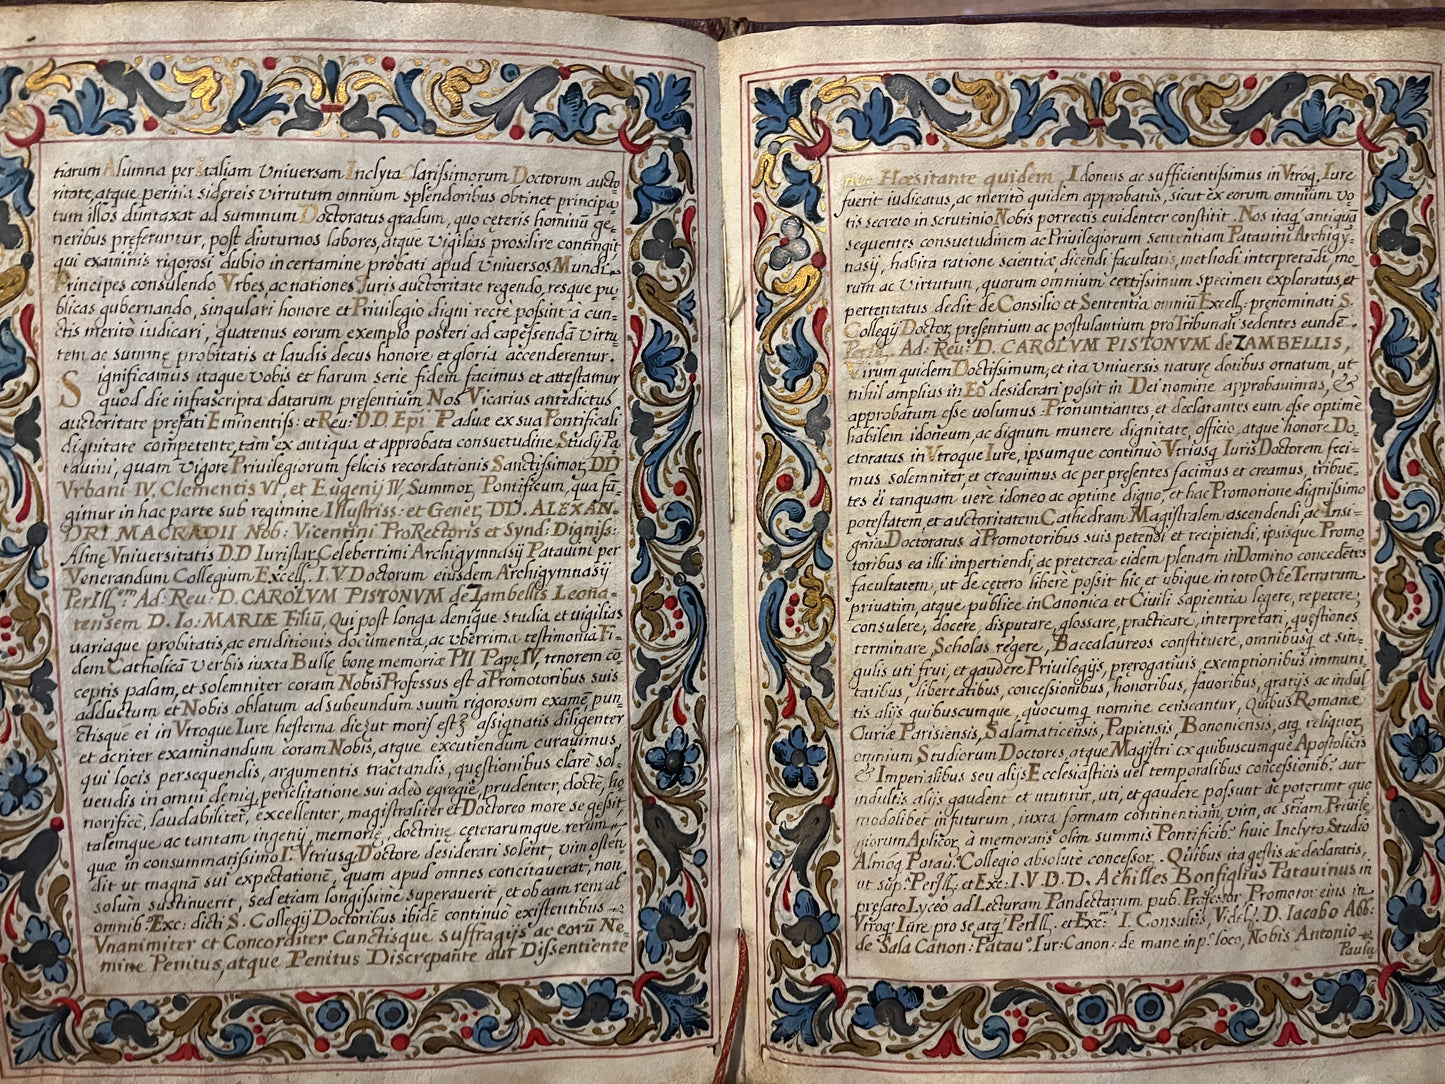 tiarum Alumna per Italiam Universam Inclyta Clarissimorum Doctorum aucto-
ritate, atque perinia sidereis virtutum omnium splendoribus obtinet principa-
tum illos duntaxat ad summum Doctoratus gradum, quo cęteris hominũ ge-
neribus pręferuntur, post diuturnos labores, atque vigilias prosilire contingit
qui examinis rigorosi dubio in certamine probati apud Universos Mundi
Principes consulendo Urbes, ac nationes Juris auctoritate regendo, resque pu-
blicas gubernando, singulari honore et Privilegio digni rectè possint à cun-
ctis meritò iudicari, quatenus eorum exemplo posteri ad capessendã virtu-
tem ac summę probitatis et laudis decus honore et gloria accenderentur.
Significamus itaque vobis et harum serie fidem facimus et attestamur
quod die infrascripta datarum presentium Nos Vicarius antedictus
auctoritate prefati Eminentiss: et Reu: D.D. Epĩ Paduæ ex sua Pontificali
dignitate competente, tam ex antiqua et approbata consuetudine Study Pa-
tauini, quam vigore Priuilegiorum felicis recordationis Sanctissimor, DD
Vrbani IV, Clementis VI, et Eugenij IV, Summor, Pontificum, qua fũ-
gimur in hac parte sub regimine Illustriss: et Gener, DD. ALEXAN-
DRI MACRADII Nob: Vicentini ProRectoris et Synd: Digniss:
Almę Vniuersitatis D.D Iuristar, Celeberrimi Archigymnasij Patauini per
Venerandum Collegium Excell, I.V Doctorum eiusdem Archigymnasij
Per Ill.em Ad: Reu: D. CAROLVM PISTONVM de Zambellis Leona-
tensem D. Io: MARIÆ Filiũ, Qui post longa denique studia et vigilias
uariaque probitatis, ac eruditionis documenta, ac vberrima testimonia Fi-
dem Catholicã verbis iuxta Bullę bonę memoriæ PII Papę IV, tenorem cõ
ceptis palam, et solemniter coram Nobis Professus est à Promotoribus suis
adductum et Nobis oblatum ad subeundum suum rigorosum examẽ pun-
ctisque ei in Vtroque Iure hesterna die, ut moris est, assignatis diligenter
et acriter examinandum coram Nobis, atque excutiendum curauimus,
qui locis persequendis, argumentis tractandis, quęstionibus clarè sol-
uendis in omni deniq, periclitatione sui adeò egregiè, prudenter, doctè, ho
norificè, laudabiliter, excellenter, magistraliter et Doctoreo more se gessit
talemque ac tantam ingenij memorię, doctrinę cęterarumque rerum,
quæ in consummatissimo I. Vtriusq, Doctore desiderari solent, vim osten
dit ut magnã sui expectationẽ, quam apud omnes concitauerat, non
solum sustinuerit, sed etiam longissimè superauerit, et ob eam rem ab
omnib: Exc: dicti S. Collegij Doctoribus ibidẽ continuò existentibus
Vnanimiter et Concorditer Cunctisque suffragijs ac corũ Ne-
mine Penitus, atque Penitus Discrepante aut Dissentiente
nue Hæsitante quidem, Idoneus ac sufficientissimus in Vtroq, Iure
fuerit iudicatus, ac meritò quidem approbatus, sicut ex eorum omnium vo
tis secreto in scrutinio Nobis porrectis euidenter constitit. Nos itaq, antiquã
sequentes consuetudinem ac Priuilegiorum sententiam Patauini Archigy-
nasij, habita ratione scientię, dicendi facultatis, methodi interpretãdi, mo
rum ac virtutum, quorum omnium certissimum specimen exploratus, et
pertentatus dedit de Consilio et Sententia omniũ Excell, pręnominati S.
Collegij Doctor, presentium ac postulantium pro Tribunali sedentes eundẽ
Per Ill. Ad. Reu: D. CAROLVM PISTONVM de ZAMBELLIS,
Virum quidem Doctissimum, et ita Vniuersis naturę dotibus ornatum, ut
nihil amplius in Eo desiderari possit in Dei nomine approbauimus, &
approbatum esse volumus Pronuntiantes et declarantes eum esse optimè
habilem idoneum, ac dignum munere dignitate, officio, atque honore Do-
ctoratus in Vtroque Iure, ipsumque continuò Vtriusq, Iuris Doctorem feci-
mus solemniter, et creauimus ac per presentes facimus et creamus, tribuẽ-
tes ei tanquam uerè idoneo ac optimè digno, et hac Promotione dignissimo
potestatem, et auctoritatem Cathedram Magistralem ascendendi, ac Insi-
gnia Doctoratus à Promotoribus suis petendi et recipiendi, ipsisque Promo-
toribus ea illi impertiendi, ac pręterea eidem plenam in Domino concedẽtes
facultatem, ut de cętero liberè possit hic et ubique in toto Orbe Terrarum
priuatim, atque publicè in Canonica et Ciuili sapientia legere, repetere,
consulere, docere, disputare, glossare, practicare, interpretari, quęstiones
terminare, Scholas regere, Baccalaureos constituere, omnibusq, et sin-
gulis uti frui, et gaudere Priuilegijs, prerogatiuis, exemptionibus immuni
tatibus, libertatibus, concessionibus, honoribus, fauoribus, gratijs ac indul
tis alijs quibuscumque, quocumq, nomine censeantur, Quibus Romanæ
Curiæ Parisiensis, Salamaticensis, Papiensis, Bononiensis, atq, reliquor,
omnium Studiorum Doctores, atque Magistri ex quibuscumque Apostolicis
& Imperialibus seu alijs Ecclesiasticis uel temporalibus concessionib: aut
indultis alijs gaudent et utuntur, uti, et gaudere possunt ac poterunt quo
modolibet in futurum, iuxta formam continentiam, vim, ac seriam Priuile
giorum Aplicor, à memoratis olim summis Pontificib: huic Inclyto Studio
Almoq, Patau.o Collegio absolutè concessor. Quibus ita gestis ac declaratis,
ut sup: Per Ill, et Exc: I.V.D.D. Achilles Bonfiglius Patauinus in
prefato Lyceo ad Lecturam Pandectarum pub: Professor Promotor eius in
Vtroq, Iure pro se atq, Per Ill. et Exc: I. Consultis, Videl: D. Iacobo Abb:
de Sala Canon: Patau: Iur: Canon: de mane in p.o loco, Nobis Antonio
Paulu